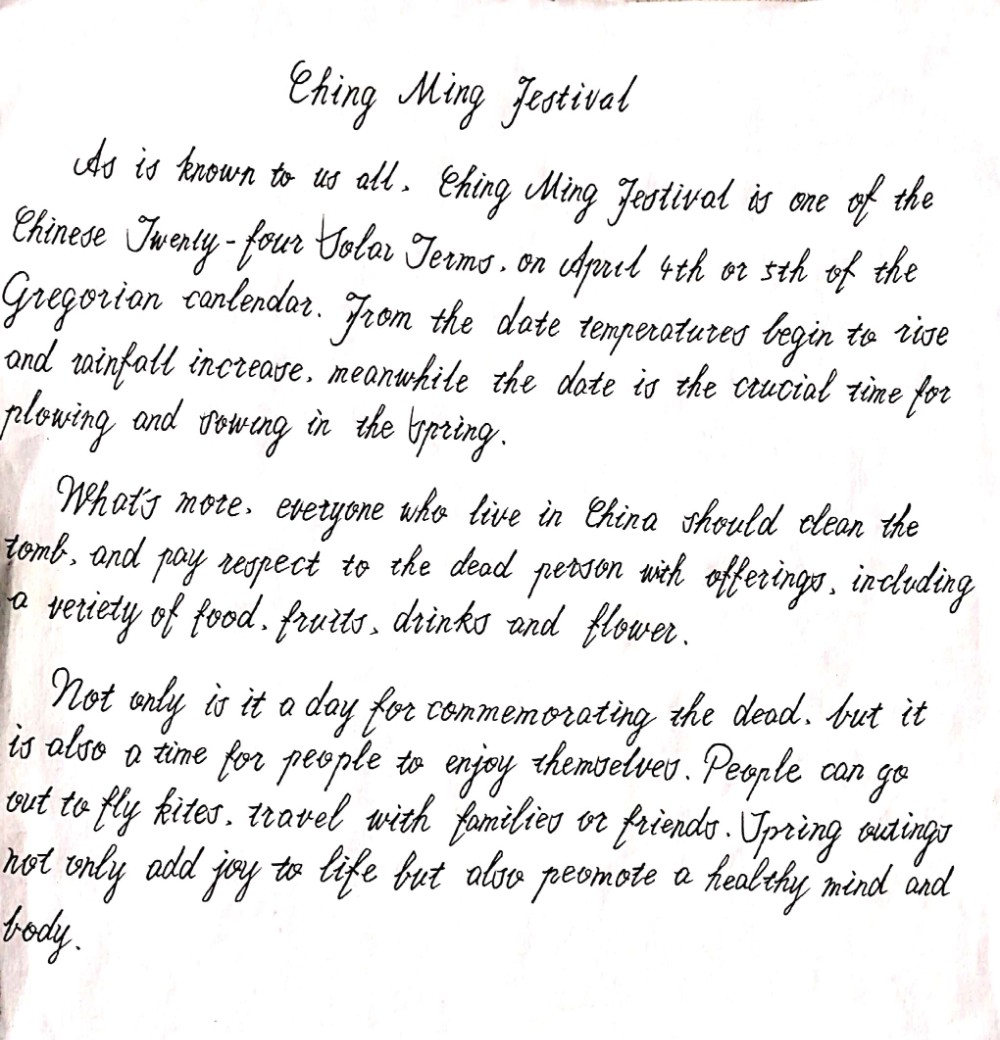 Ching Ming Festival
As is known to us all, Ching Ming Festival is one of the
Chinese Twenty-four Solar Terms, on April 4th or 5th of the
Gregorian canlendar. From the date temperatures begin to rise
and rainfall increase, meanwhile the date is the crucial time for
plowing and sowing in the Spring.
What's more, everyone who live in China should clean the
tomb, and pay respect to the dead person with offerings, including
a veriety of food, fruits, drinks and flower.
Not only is it a day for commemorating the dead, but it
is also a time for people to enjoy themselves. People can go
out to fly kites, travel with families or friends. Spring outings
not only add joy to life but also peomote a healthy mind and
body.